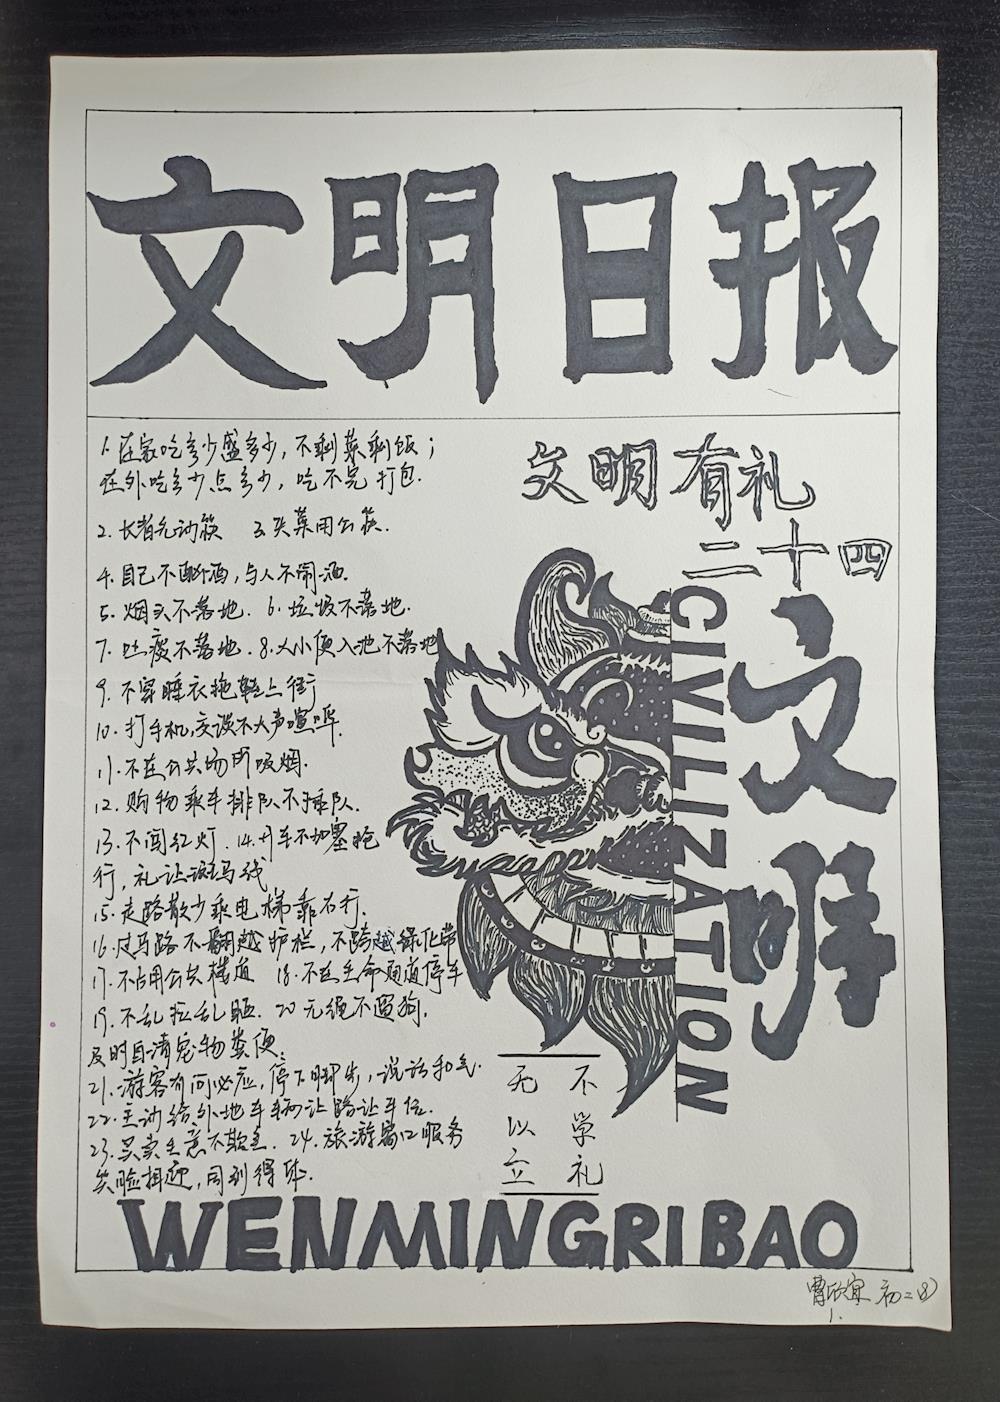 文明日报
1.在家吃多少盛多少，不剩菜剩饭；
在外吃多少点多少，吃不完打包.
2.长者先动筷 3.夹菜用公筷.
4.自己不酗酒，与人不闹酒.
5.烟头不落地. 6.垃圾不落地.
7.吐痰不落地.8.大小便入池不落地
9.不穿睡衣拖鞋上街
10.打手机,交谈不大声喧哗.
11.不在公共场所吸烟.
12.购物乘车排队不插队.
13.不闯红灯.14.开车不加塞抢
行，礼让斑马线
15.走路散步乘电梯靠右行.
16.过马路不翻越护栏，不跨越绿化带
17.不占用公共楼道 18.不在生命通道停车
19.不乱拉乱晒. 20无绳不遛狗.
及时自清宠物粪便.
21.游客有问必应，停下脚步，说话和气.
22.主动给外地车辆让路让车位.
23.买卖生意不欺生. 24.旅游窗口服务
笑脸相迎，周到得体.
文明有礼
二十四
文明
CIVILIZATION
不学礼
无以立
WENMINGRIBAO
曹欣宜 初二⑧
1.